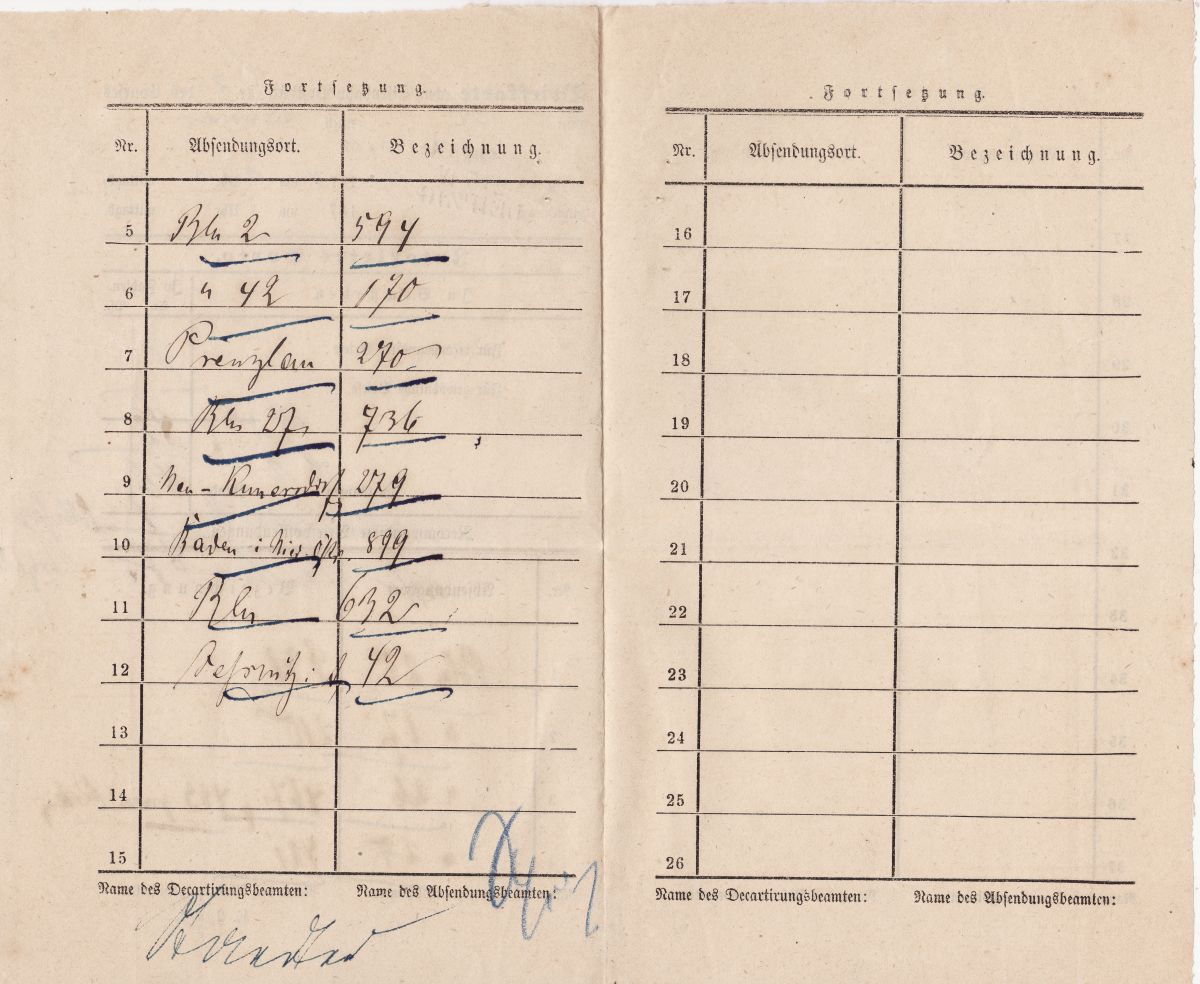 Fortsetzung.
Nr. Absendungsort. Bezeichnung.
5 Bln 2 594
6 " 42 170
7 Prenzlau 270
8 Bln 27 736
9 Neu-Kunersdorf 279
10 Baden i Nied. Östr. 899
11 Bln 632
12 42
13
14
15
Name des Decartirungsbeamten: Name des Absendungsbeamten:
Fortsetzung.
Nr. Absendungsort. Bezeichnung.
16
17
18
19
20
21
22
23
24
25
26
Name des Decartirungsbeamten: Name des Absendungsbeamten: